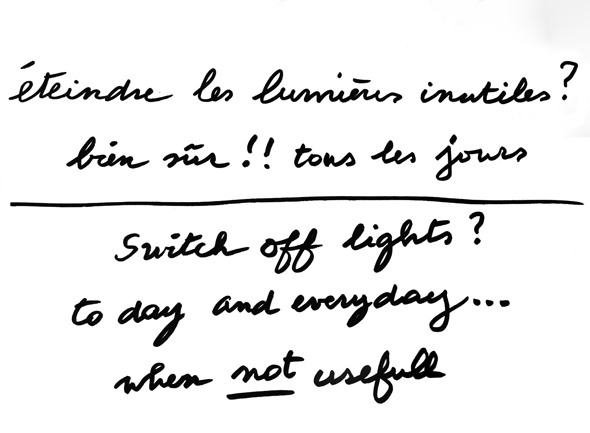 éteindre les lumières inutiles?
bien sûr!! tous les jours
Switch off lights?
to day and everyday...
when not usefull